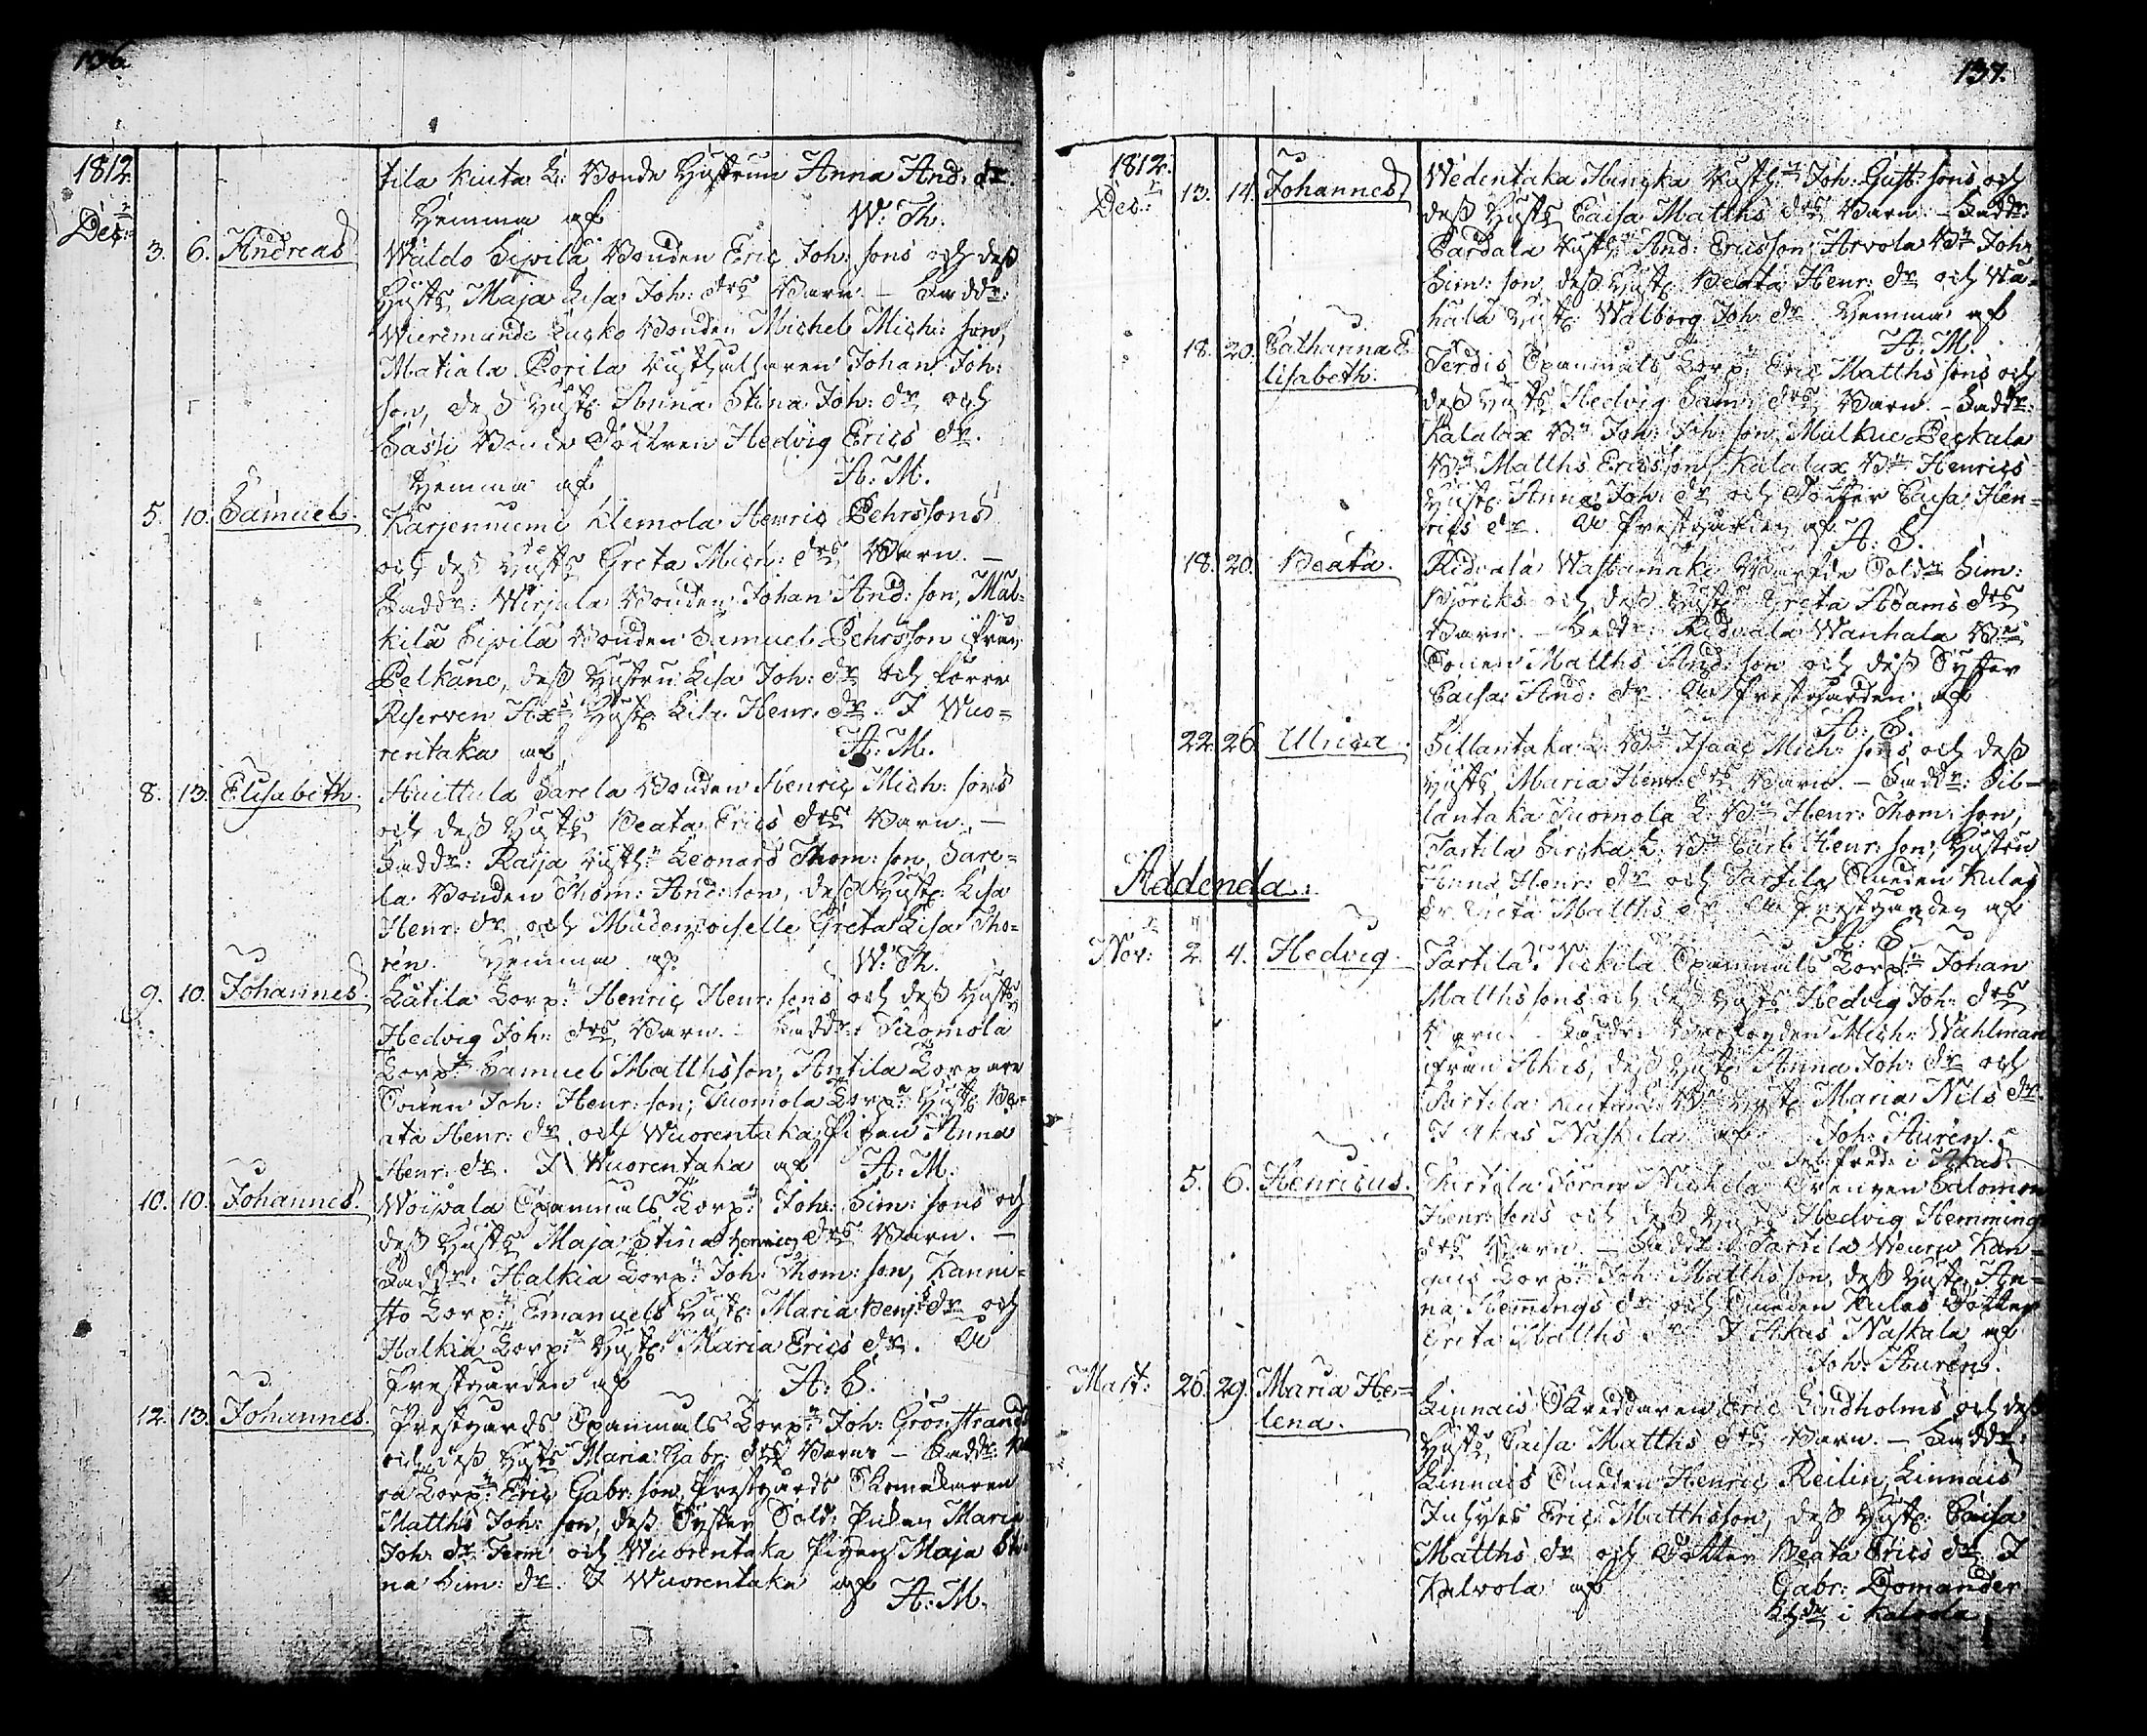 136
1812.
Decr:
tila Kiuta L: Bonde Hustrun Anna And: dr.
Hemma af W: Th.
3. 6. Andreas
Waldo Sipilä Bonden Eric Joh: sons och dess
Hust: Maja Lisa Joh: drs Barn. – Faddr:
Wieremande Lusko Bonden Michel Mich: son,
Matiala Porila Rusthållaren Johan Joh:
son, dess Hust: Anna Stina Joh: dr och
Sassi Bonde Dottren Hedvig Erics dr.
Hemma af A: M.
5. 10. Samuel.
Karjenniemi Klemola Henric Pehrssons
och dess Hust: Greta Mich: drs Barn. –
Faddr: Wirjala Bonden Johan And: son, Mäl-
kilä Sipilä Bonden Samuel Pehrsson ifrån
Pelkäne, dess Hustru Lisa Joh: dr och
Reserven Ax: Hust: Lisa Henr: dr. I Wuo-
rentaka af A: M.
8. 13. Elisabeth.
Huittula Sarela Bonden Henric Mich: sons
och dess Hust: Beata Erics drs Barn. –
Faddr: Raija Rusth:n Leonard Thom: son, Sare-
la Bonden Thom: And: son, dess Hust: Lisa
Henr: dr och Mademoiselle Greta Lisa Tho-
ren. Hemma af W: Th.
9. 10. Johannes.
Lätila Torp:n Henric Henr: sons och dess Hust:
Hedvig Joh: drs Barn. – Faddr: Tuomola
Torp:n Samuel Matthsson, Antila Torpare
Sonen Joh: Henr: son, Tuomola Torp:n Hust: Be-
ata Henr: dr och Wuorentaka Pigan Anna
Henr: dr. I Wuorentaka af A: M.
10. 10. Johannes.
Woipala Spanmåls Torp:n Joh: Sim: sons och
dess Hust: Maja Stina Henrics drs Barn. –
Faddr: Halkia Torp:n Joh: Thom: son, Kanni-
sto Torp:n Emanuels Hust: Maria Benj: dr och
Halkia Torp:n Hust: Maria Erics dr. Å
Prestgården af A: S.
12. 13. Johannes.
Prestgårds Spanmåls Torp:n Joh: Grönstrands
och dess Hust: Maria Gabr: drs Barn – Faddr:
ra Torp:n Eric Gabr: son, Prestgårds Skomakaren
Matths Joh: son, dess Syster Sold: Pigan Maria
Joh: dr Term och Wuorentaka Pigan Maja Sti-
na Sim: dr. I Wuorentaka af A: M.
137.
1812.
Decr:
13. 14. Johannes
Wedentaka Hinska Rusth:n Joh: Gust: sons och
dess Hust: Caisa Matths drs Barn. – Faddr:
Pardala Rusth:n And: Ericsson, Arvola B:n Joh:
Sim: son, dess Hust: Beata Henr: dr och Wä-
hälä Hust: Walborg Joh: dr Hemma af
A: M.
18. 20. Catharina E-
lisabeth.
Ferdis Spanmåls Torp:n Eric Matths sons och
dess Hust: Hedvig Sam: drs Barn. – Faddr:
Katalax B:n Joh: Joh: son, Mälkiä Peckala
B:n Matths Ericsson, Katalax B:n Henrics
Hust: Anna Joh: dr och Dotter Caisa Hen-
rics dr. Å Prestgården af A: S.
18. 20. Beata.
Ridvala Wastamäki Sold:n Sim:
Björks och dess Hust: Greta Adams drs
Barn. – Faddr: Ridvala Wanhala B:n
Sonen Matths And: son och dess Syster
Caisa And: dr. Å Prestgården af
A: S.
22. 26. Ulrica.
Sillantaka L: B:n Isaac Mich: sons och dess
Hust: Maria Henr: drs Barn. – Faddr: Sil-
lantaka Tuomola L: B:n Henr: Thom: son,
Partila Sirska L: B:n Carl Henr: son, Hustru
Anna Henr: dr och Partila Smeden Kulas
dr Greta Matths dr Å Prestgården af
A: S.
Addenda:
Novr: 2. 4. Hedvig.
Partila Nickilä Spanmåls Torp:n Johan
Matths sons och dess Hust: Hedvig Joh: drs
Barn. Faddr: Mich: Wahlman
ifrån Akas, dess Hust: Anna Joh: dr och
Partila Kiuta L: B:n Hust: Maria Nils dr.
I Akas Naskila af Joh: Auren.
i Akas.
5. 6. Henricus.
Partila Nickilä Drengen Salomon
Henr: sons och dess Hust: Hedvig Hemmings
drs Barn. – Faddr: Partila Kan-
gais Torp:n Joh: Matthsson, dess Hust: An-
na Hemmings dr och Smeden Kulas Dotter
Greta Matths dr I Akas Naskala af
Joh: Auren.
Mart: 26. 29. Maria He-
lena.
Linnais Skreddaren Eric Lindholms och dess
Hust: Caisa Matths drs Barn. – Faddr:
Linnais Smeden Henric Reilin, Linnais
Inhyses Eric Matthsson, dess Hust: Caisa
Matths dr och Dotter Beata Erics dr I
Kalvola af Gabr: Tomander
i Kalvola